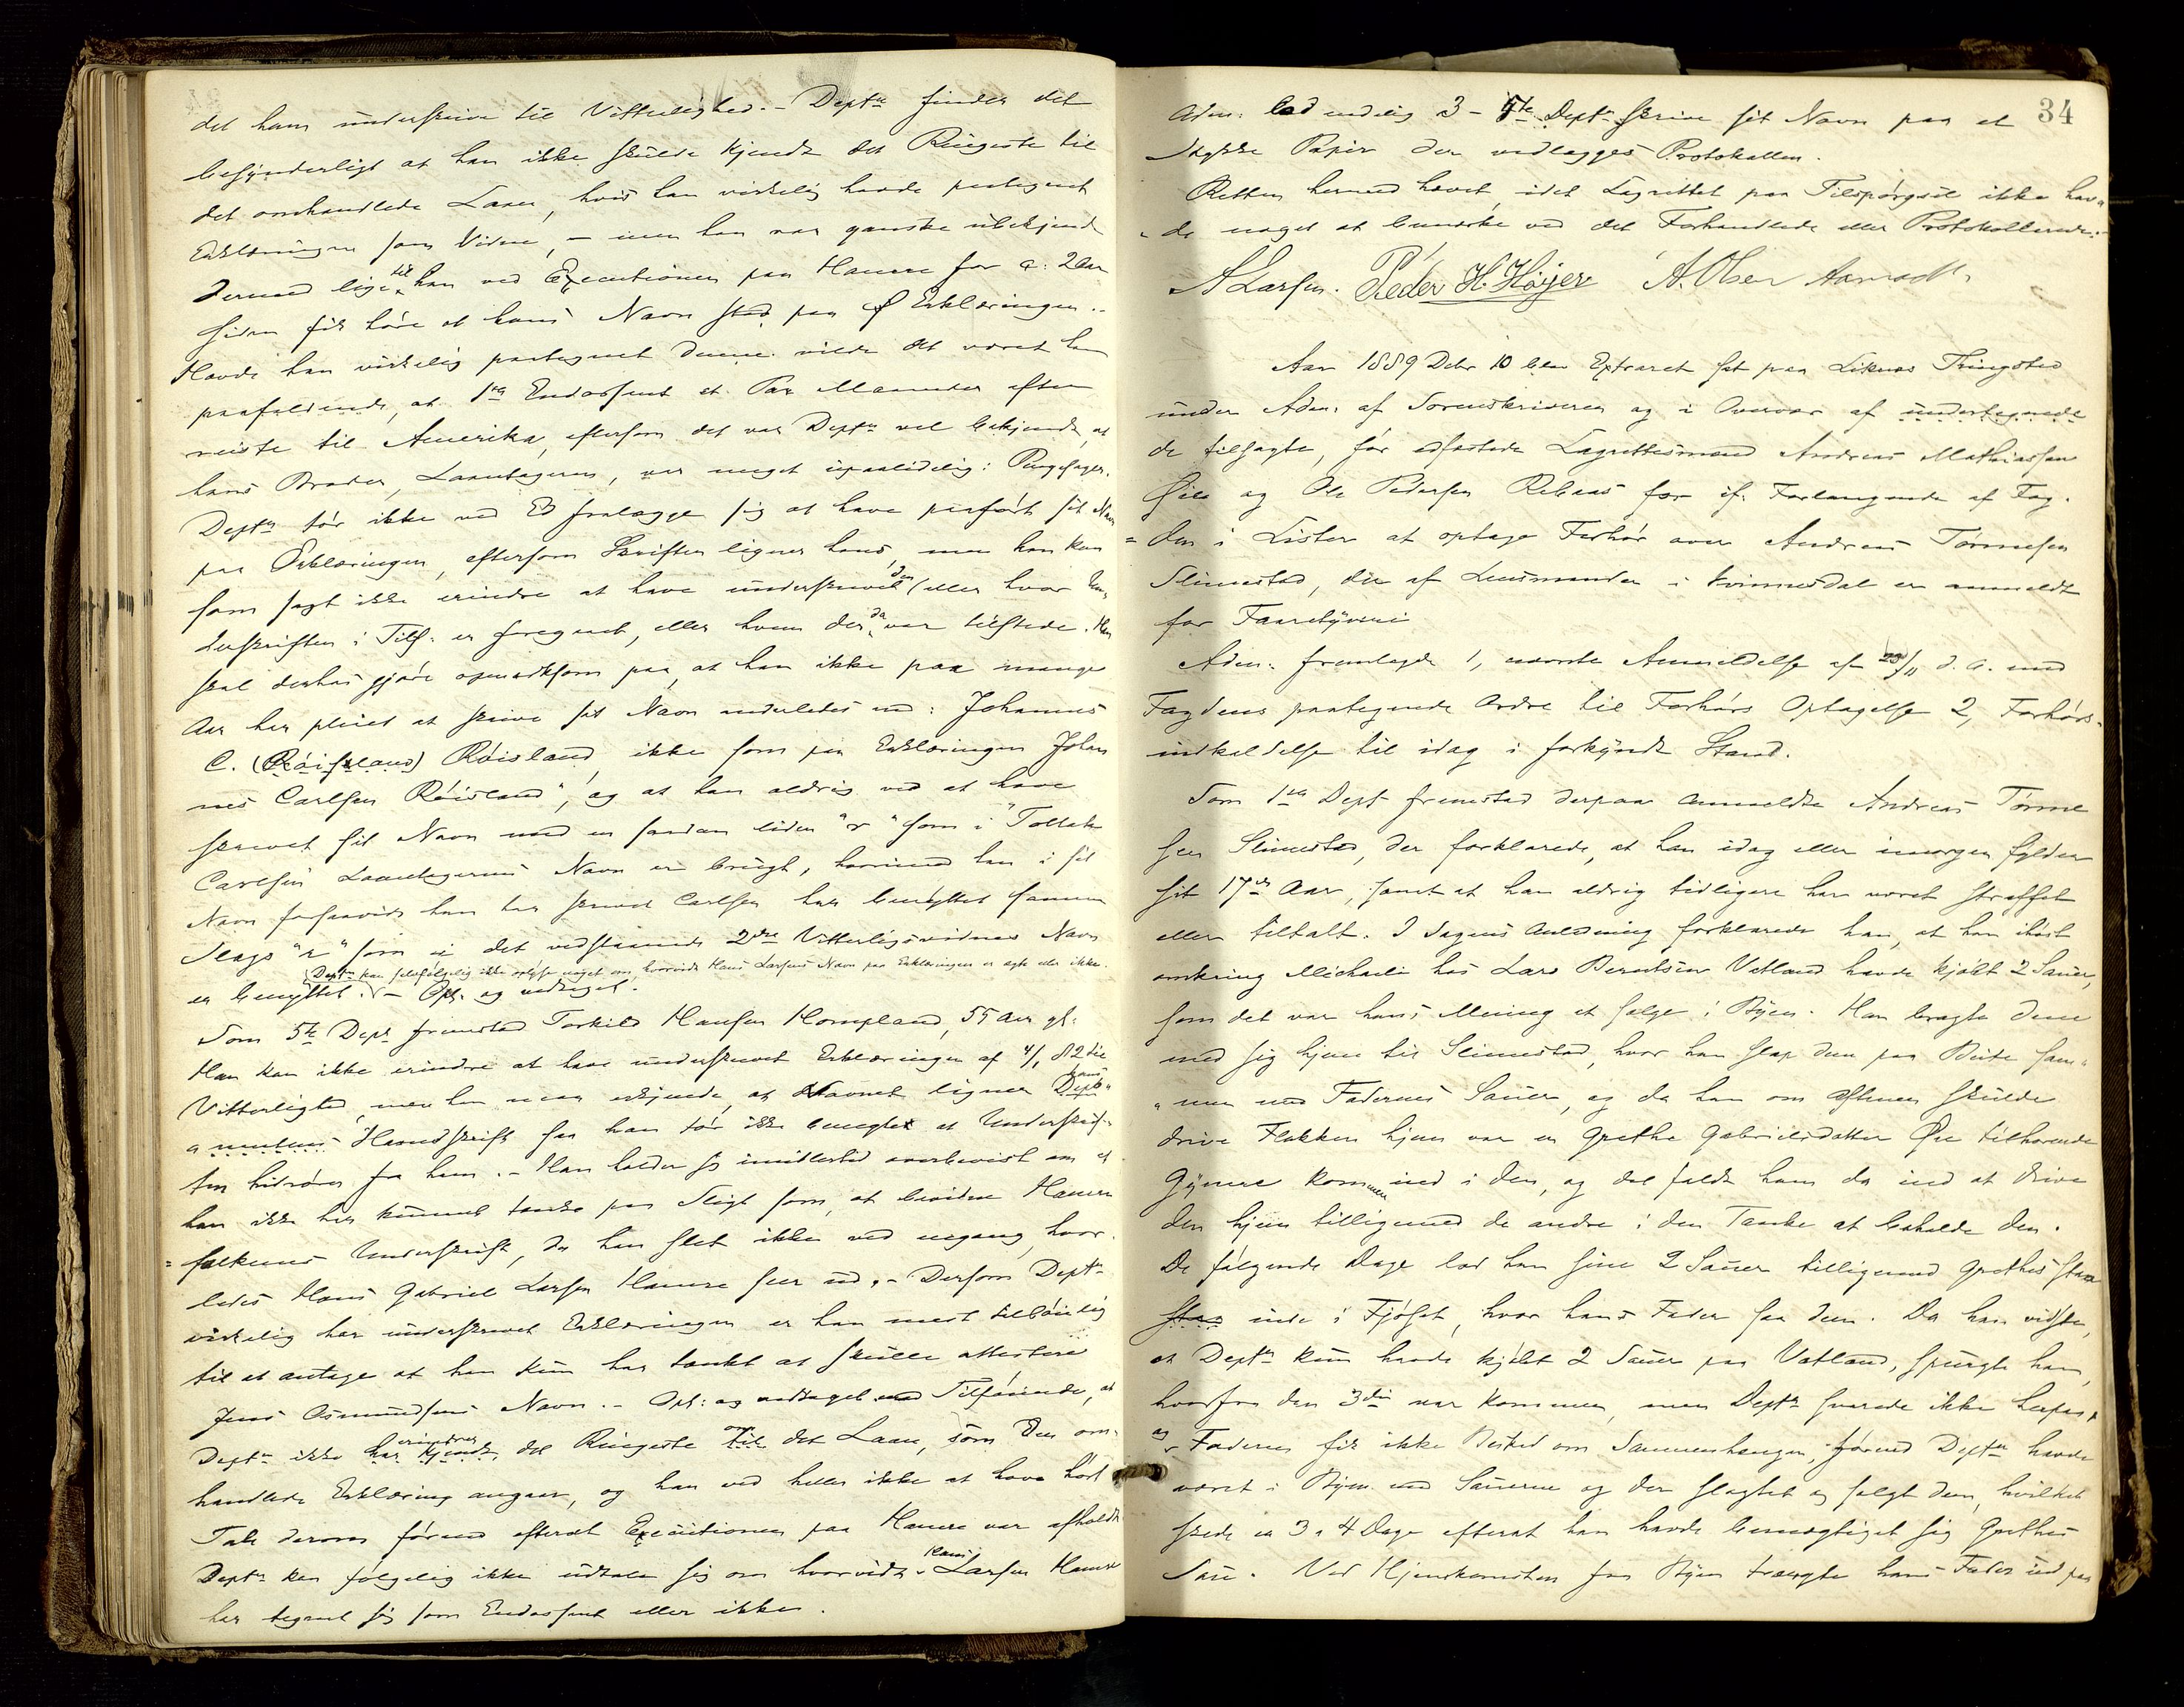 det ham underskrive til Vitterlighed. - Deptn finder det
besynderligt at han ikke skulde kjende det Ringeste til
det omhandlede Laan, hvis han virkelig havde paategnet
Erklæringen som Vidne, - men han var ganske ubekjendt
dermed lige til han ved Executionen paa Hamre for a: 2 Aar
siden fik høre at hans Navn stod paa Erklæringen. -
Havde han virkelig paategnet denne vilde det været ham
paafaldende, at 1ste Endossent et Par Maaneder efter
reiste til Amerika, eftersom det var Deptn vel bekjendt, at
hans Broder, Laantageren, var meget upaalidelig i Pengesager.
Deptn tør ikke ved Ed fralægge sig at have paaført sit Navn
paa Erklæringen, eftersom Skriften ligner hans, men han kan
som sagt ikke erindre at have underskrevet den (eller hvor Un-
derskriften i Tilf: er foregaaet, eller hvem der da var tilstede. Han
skal derhos gjøre opmærksom paa, at han ikke paa mange
Aar har pleiet at skrive sit Navn anderledes end: Johannes
C. (Røisland) Røisland, ikke som paa Erklæringen Johan
nes Carlsen Røisland", og at han aldrig ved at have
skrevet sit Navn med en saadan liden "r" som i "Tollak
Carlsens Laantagerens Navn er brugt, hvorimod han i sit
Navn forsaavidt han har skrevet Carlsen har benyttet samme
Slags "r" som i det vedstaaende 2det Vitterligsvidnes Navn
(Deptn kan selvfølgelig ikke oplyse noget om, hvorvidt Hans Larsens Navn paa Erklæringen er ægte eller ikke.
er benyttet. - Opl. og vedtaget.
Som 5te Dept fremstod Torkild Hansen Hompland, 55 Aar gl:
Han kan ikke erindre at have underskrevet Erklæringen af 4/1 82 til
Vitterlighed, men han maa erkjende, at Navnet ligner hans Dept-
amentens Haandskrift saa han tør ikke benegte at Underskrif-
ten hidrører fra ham. - Han holder sig imidlertid overbevist om at
han ikke har kunnet tænke paa Sligt som, at bevidne Hamre
folkenes Underskrift, da han slet ikke ved engang, hvor-
ledes Hans Gabriel Larsen Hamre seer ud. - Dersom Deptn
virkelig har underskrevet Erklæringen er han mest tilbøielig
til at antage at han kun har tænkt at skulle attestere
Jens Osmundsens Navn. - Opl: og vedtaget med Tilføiende, at
Deptn ikke har kjendt erindrer det Ringeste til det Laan, som den om-
handlede Erklæring angaar, og han ved heller ikke at have hørt
Tale derom førend efterat Executionen paa Hamre var afholdt
Deptn kan følgelig ikke udtale sig om hvorvidt Hans Larsen Hamre
har tegnet sig som Endossent eller ikke.
34
Adm: lod endelig 3 - 5te Deptn skrive sit Navn paa et
Stykke Papir der vedlægges Protokollen.
Retten hermed hævet, idet Lagrettet paa Tilspørgsel ikke hav-
de noget at bemærke ved det Forhandlede eller Protokollerede. -
A Larsen. Peder H. Høyer A. Olsen Aamodt
Aar 1889 Debr 10 blev Extraret sat paa Liknes Thingsted
under Adm: af Sorenskriveren og i Overvær af undertegnede
de tilsagte, før edfæstede Lagrettesmænd Andreas Mathiassen
Øie og Ole Pedersen Rebaas for if. Forlangende af Fog-
den i Lister at optage Forhør over Andreas Tørresen
Slimestad, der af Lensmanden i Kvinesdal er anmeldt
for Faaretyveri
Adm. fremlagde 1, nævnte Anmeldelse af 29/11 d. A. med
Fogdens paategnede Ordre til Forhørs Optagelse 2, Forhørs-
indkaldelse til idag i forkyndt Stand.
Som 1ste Dept fremstod derpaa anmeldte Andreas Tørre
sen Slimestad, der forklarede, at han idag eller imorgen fylder
sit 17de Aar, samt at han aldrig tidligere har været straffet
eller tiltalt. I Sagens Anledning forklarede han, at han ihøst
omkring Michaeli hos Lars Berntsen Vatland havde kjøbt 2 Sauer,
som det var hans Mening at sælge i Byen. Han bragte dem
med sig hjem til Slimestad, hvor han slap dem paa Beite sam-
men med Faderens Sauer, og da han om Aftenen skulde
drive Flokken hjem var en Grethe Gabrielsdatter Øie tilhørende
Gymre kommen ind i den, og det faldt ham da ind at drive
den hjem tilligemed de andre i den Tanke at beholde den.
De følgende Dage lod han sine 2 Sauer tilligemed Grethes staa
staa inde i Fjøset, hvor hans Fader saa dem. Da han vidste,
at Deptn kun havde kjøbt 2 Sauer paa Vatland, spurgte han,
hvorfra den 3die var kommen, men Deptn svarede ikke herpaa,
og Faderen fik ikke Besked om Sammenhængen, førend Deptn havde
været i Byen med Sauerne og der slagtet og solgt dem, hvilket
skede ca 3 a 4 Dage efterat han havde bemægtiget sig Grethes
Sau. Ved Hjemkomsten fra Byen trængte hans Fader ind paa